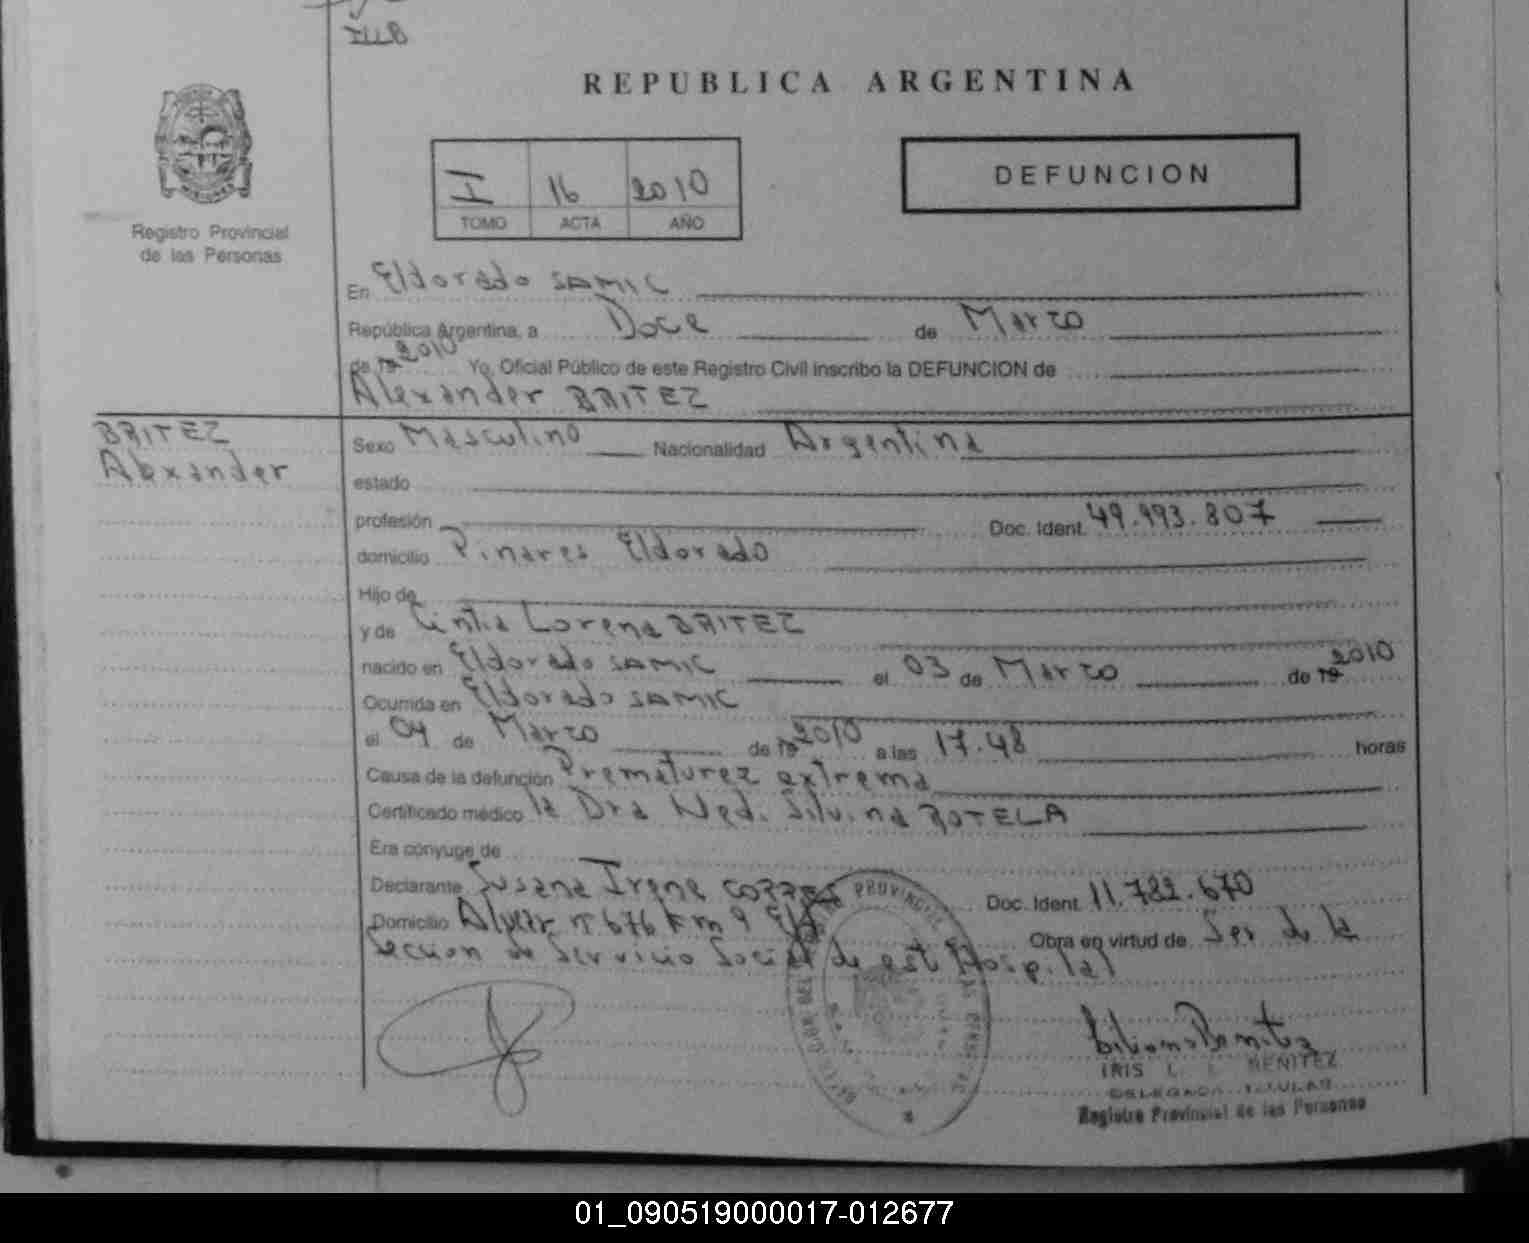 REPUBLICA ARGENTINA
I 16 2010
TOMO ACTA AÑO
DEFUNCION
Registro Provincial
de las Personas
En Eldorado SAMIC
República Argentina, a Doce de Marzo
de 19 2010 Yo, Oficial Público de este Registro Civil inscribo la DEFUNCION de
Alexander BRITEZ
BRITEZ
Alexander
Sexo Masculino Nacionalidad Argentina
estado
profesión Doc. Ident. 49.993.807
domicilio Pinares Eldorado
Hijo de
y de Cintia Lorena BRITEZ
nacido en Eldorado SAMIC el 03 de Marzo de 19 2010
Ocurrida en Eldorado SAMIC
el 04 de Marzo de 19 2010 a las 17.48 horas
Causa de la defunción Prematurez extrema
Certificado médico la Dra Med. Silvina BOTELA
Era cónyuge de
Declarante Susana Irene Doc. Ident. 11.782.670
Domicilio Alvear nº 676 Km 9
Obra en virtud de Ser de la
Seccion de Servicio Social de est Hospital
IRIS L. BENITEZ
DELEGADA TITULAR
Registro Provincial de las Personas
01_090519000017-012677